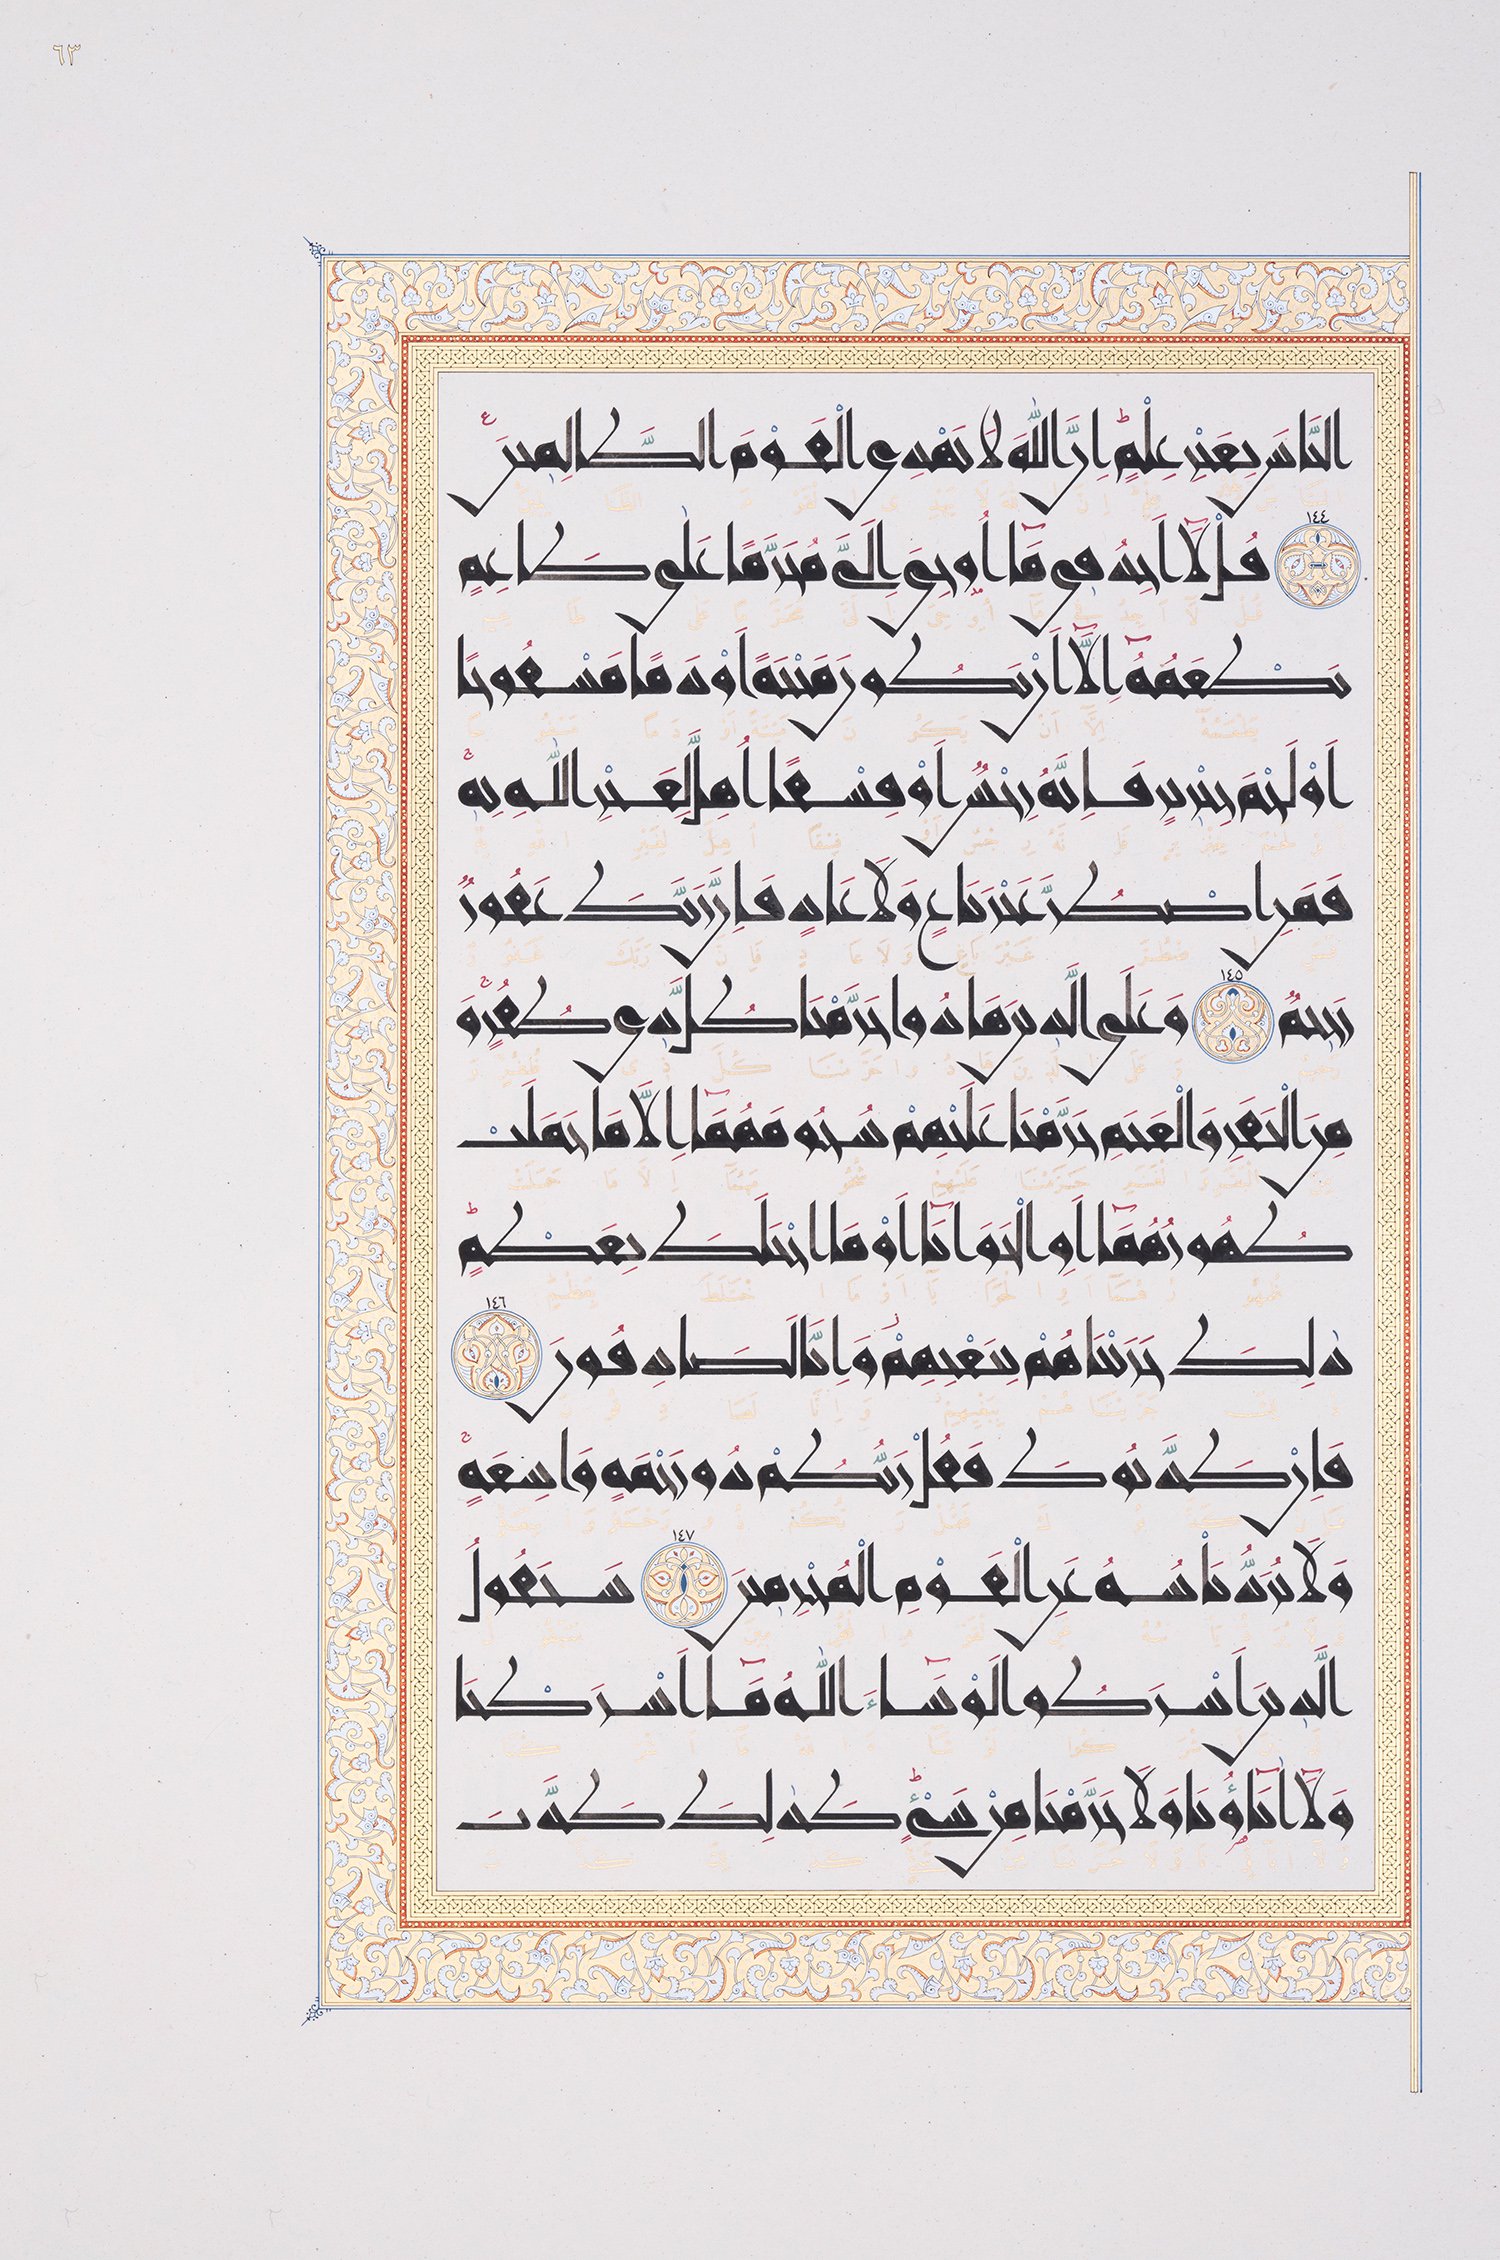 ٦٣
النَّاسَ بِغَيْرِ عِلْمٍ ۗ إِنَّ اللَّهَ لَا يَهْدِي الْقَوْمَ الظَّالِمِينَ
١٤٤ قُلْ لَآ أَجِدُ فِي مَآ أُوحِيَ إِلَيَّ مُحَرَّمًا عَلَىٰ طَاعِمٍ
يَطْعَمُهُٓ إِلَّآ أَنْ يَكُونَ مَيْتَةً أَوْ دَمًا مَسْفُوحًا
أَوْ لَحْمَ خِنْزِيرٍ فَإِنَّهُ رِجْسٌ أَوْ فِسْقًا أُهِلَّ لِغَيْرِ اللَّهِ بِهِ ۚ
فَمَنِ اضْطُرَّ غَيْرَ بَاغٍ وَلَا عَادٍ فَإِنَّ رَبَّكَ غَفُورٌ
رَحِيمٌ ١٤٥ وَعَلَى الَّذِينَ هَادُوا حَرَّمْنَا كُلَّ ذِي ظُفُرٍ ۚ وَ
مِنَ الْبَقَرِ وَالْغَنَمِ حَرَّمْنَا عَلَيْهِمْ شُحُومَهُمَآ إِلَّا مَا حَمَلَتْ
ظُهُورُهُمَآ أَوِ الْحَوَايَآ أَوْ مَا اخْتَلَطَ بِعَظْمٍ ۗ
ذَٰلِكَ جَزَيْنَاهُمْ بِبَغْيِهِمْ ۖ وَإِنَّا لَصَادِقُونَ ١٤٦
فَإِنْ كَذَّبُوكَ فَقُلْ رَبُّكُمْ ذُو رَحْمَةٍ وَاسِعَةٍ ۚ
وَلَا يُرَدُّ بَأْسُهُ عَنِ الْقَوْمِ الْمُجْرِمِينَ ١٤٧ سَيَقُولُ
الَّذِينَ أَشْرَكُوا لَوْ شَآءَ اللَّهُ مَآ أَشْرَكْنَا
وَلَآ آبَآؤُنَا وَلَا حَرَّمْنَا مِنْ شَيْءٍ ۗ كَذَٰلِكَ كَذَّبَ